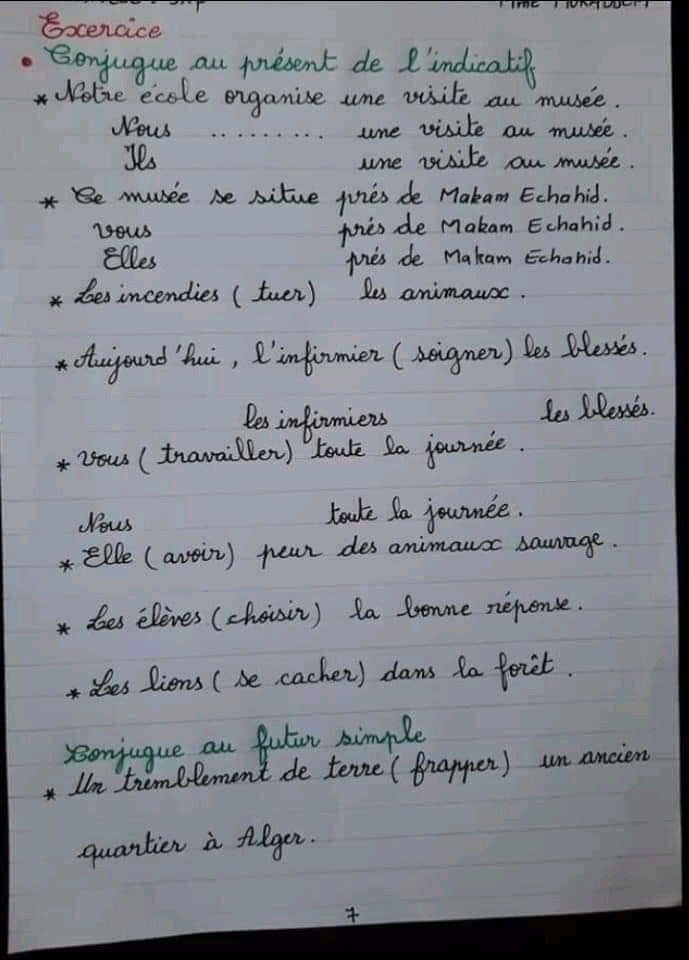 Exercice
• Conjugue au présent de l'indicatif
* Notre école organise une visite au musée.
Nous .......... une visite au musée.
Ils une visite au musée.
* Ce musée se situe prés de Makam Echahid.
vous prés de Makam Echahid.
Elles prés de Makam Echahid.
* Les incendies ( tuer) les animaux.
* Aujourd'hui, l'infirmier ( soigner) les blessés.
les infirmiers les blessés.
* Vous ( travailler) toute la journée.
Nous toute la journée.
* Elle ( avoir) peur des animaux sauvage.
* Les élèves (choisir) la bonne réponse.
* Les lions ( se cacher) dans la forêt.
Conjugue au futur simple
* Un tremblement de terre ( frapper) un ancien
quartier à Alger.
7